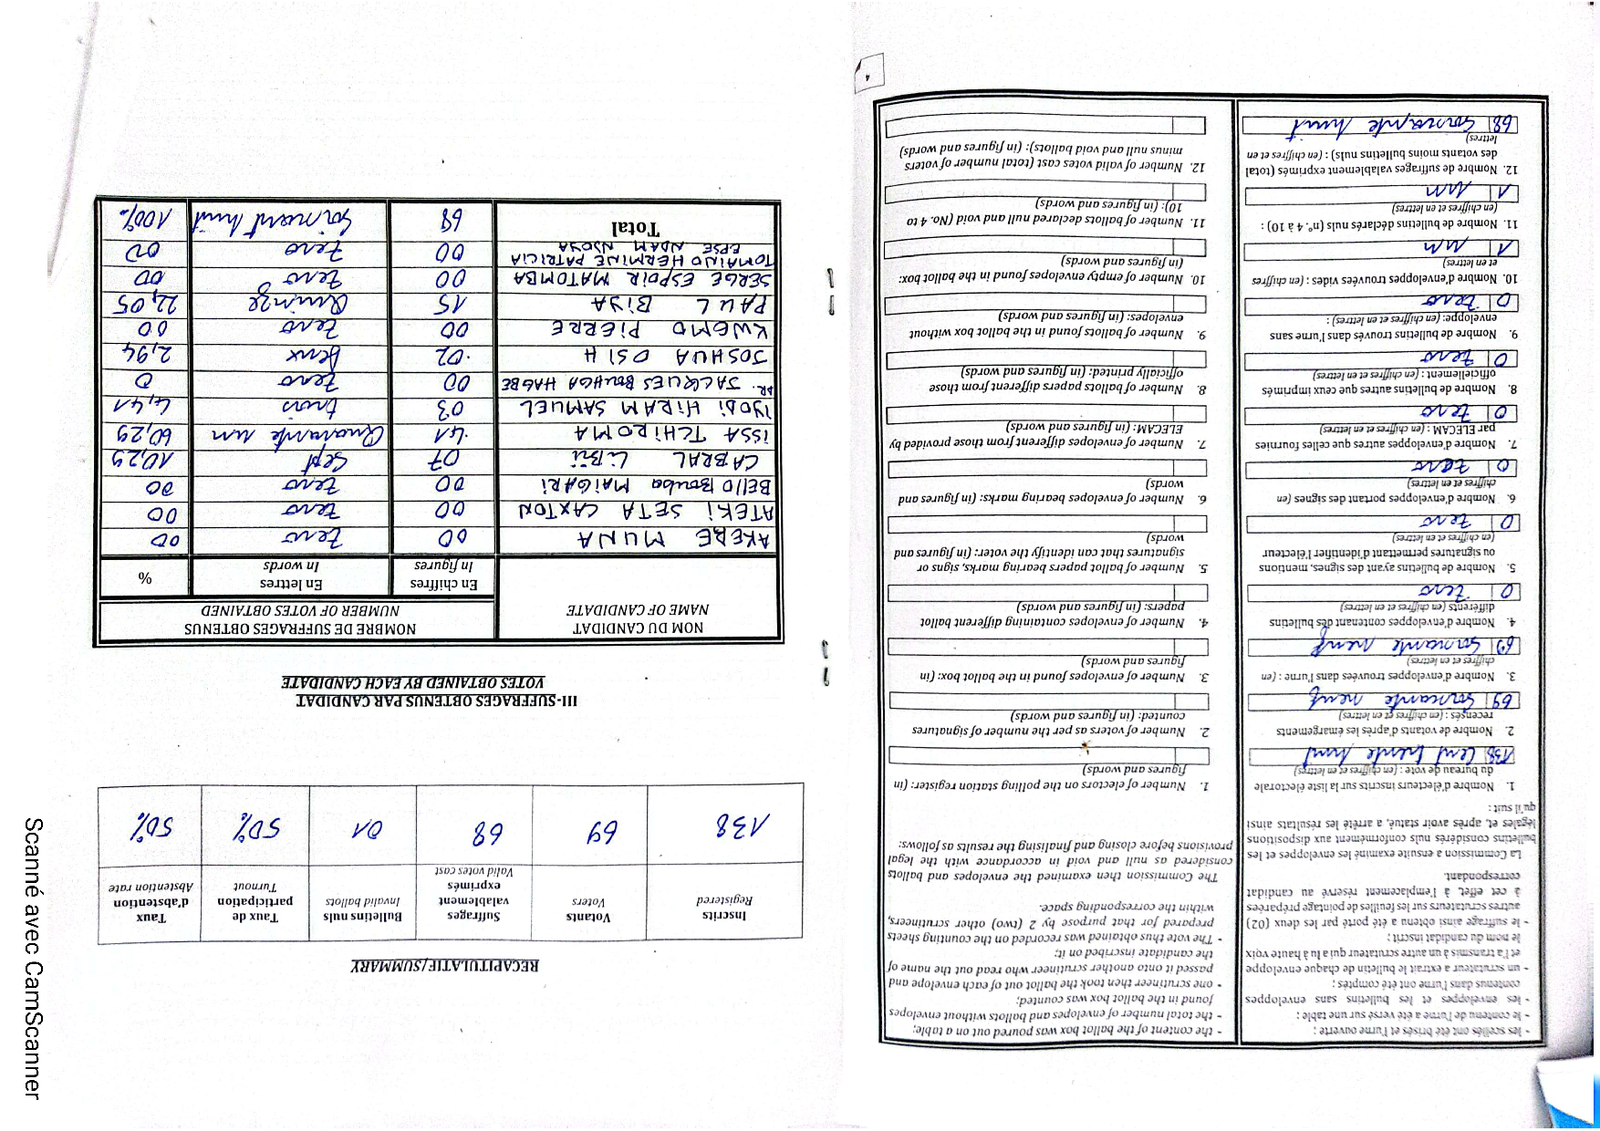 - les scellés ont été brisés et l'urne ouverte ;
- le contenu de l'urne a été versé sur une table ;
- les enveloppes et les bulletins sans enveloppes
contenus dans l'urne ont été comptés ;
- un scrutateur a extrait le bulletin de chaque enveloppe
et l'a transmis à un autre scrutateur qui a lu à haute voix
le nom du candidat inscrit ;
- le suffrage ainsi obtenu a été porté par les deux (02)
autres scrutateurs sur les feuilles de pointage préparées
à cet effet, à l'emplacement réservé au candidat
correspondant.
La Commission a ensuite examiné les enveloppes et les
bulletins considérés nuls conformément aux dispositions
légales et, après avoir statué, a arrêté les résultats ainsi
qu'il suit :
1. Nombre d'électeurs inscrits sur la liste électorale
du bureau de vote : (en chiffres et en lettres)
138 Cent trente huit
2. Nombre de votants d'après les émargements
recensés : (en chiffres et en lettres)
69 Soixante neuf
3. Nombre d'enveloppes trouvées dans l'urne : (en
chiffres et en lettres)
69 Soixante neuf
4. Nombre d'enveloppes contenant des bulletins
différents (en chiffres et en lettres)
0 Zero
5. Nombre de bulletins ayant des signes, mentions
ou signatures permettant d'identifier l'électeur
(en chiffres et en lettres)
0 Zero
6. Nombre d'enveloppes portant des signes (en
chiffres et en lettres)
0 Zero
7. Nombre d'enveloppes autres que celles fournies
par ELECAM : (en chiffres et en lettres)
0 Zero
8. Nombre de bulletins autres que ceux imprimés
officiellement : (en chiffres et en lettres)
0 Zero
9. Nombre de bulletins trouvés dans l'urne sans
enveloppe: (en chiffres et en lettres) :
0 Zero
10. Nombre d'enveloppes trouvées vides : (en chiffres
et en lettres)
1 un
11. Nombre de bulletins déclarés nuls (n°. 4 à 10) :
(en chiffres et en lettres)
1 un
12. Nombre de suffrages valablement exprimés (total
des votants moins bulletins nuls) : (en chiffres et en
lettres)
68 Soixante huit
- the content of the ballot box was poured out on a table;
- the total number of envelopes and ballots without envelopes
found in the ballot box was counted;
- one scrutineer then took the ballot out of each envelope and
passed it onto another scrutineer who read out the name of
the candidate inscribed on it;
- The vote thus obtained was recorded on the counting sheets
prepared for that purpose by 2 (two) other scrutineers,
within the corresponding space.
The Commission then examined the envelopes and ballots
considered as null and void in accordance with the legal
provisions before closing and finalising the results as follows:
1. Number of electors on the polling station register: (in
figures and words)
2. Number of voters as per the number of signatures
counted: (in figures and words)
3. Number of envelopes found in the ballot box: (in
figures and words)
4. Number of envelopes containing different ballot
papers: (in figures and words)
5. Number of ballot papers bearing marks, signs or
signatures that can identify the voter: (in figures and
words)
6. Number of envelopes bearing marks: (in figures and
words)
7. Number of envelopes different from those provided by
ELECAM: (in figures and words)
8. Number of ballots papers different from those
officially printed: (in figures and words)
9. Number of ballots found in the ballot box without
envelopes: (in figures and words)
10. Number of empty envelopes found in the ballot box:
(in figures and words)
11. Number of ballots declared null and void (No. 4 to
10): (in figures and words)
12. Number of valid votes cast (total number of voters
minus null and void ballots): (in figures and words)
4
RECAPITULATIF/SUMMARY
Inscrits Registered Votants Voters Suffrages valablement exprimés Valid votes cast Bulletins nuls Invalid ballots Taux de participation Turnout Taux d'abstention Abstention rate
138 69 68 01 50% 50%
III-SUFFRAGES OBTENUS PAR CANDIDAT
VOTES OBTAINED BY EACH CANDIDATE
NOM DU CANDIDAT NOMBRE DE SUFFRAGES OBTENUS
NAME OF CANDIDATE NUMBER OF VOTES OBTAINED
En chiffres En lettres %
In figures In words
AKERE MUNA 00 Zero 00
ATEKI SETA CAXTON 00 Zero 00
BEllO Bouba MAIGARI 00 Zero 00
CABRAL LiBii 07 Sept 10,29
ISSA TCHIROMA 41 Quarante un 60,29
IYODI HIRAM SAMUEL 03 trois 4,41
DR. JACQUES BOUHGA HAGBE 00 Zero 0
JOSHUA OSIH 02 Deux 2,94
KWEMO PIERRE 00 Zero 00
PAUL BIYA 15 Quinze 22,05
SERGE ESPOIR MATOMBA 00 Zero 00
TOMAINO HERMINE PATRICIA
EPSE NDAM NJOYA 00 Zero 00
Total 68 Soixant huit 100%
Scanné avec CamScanner